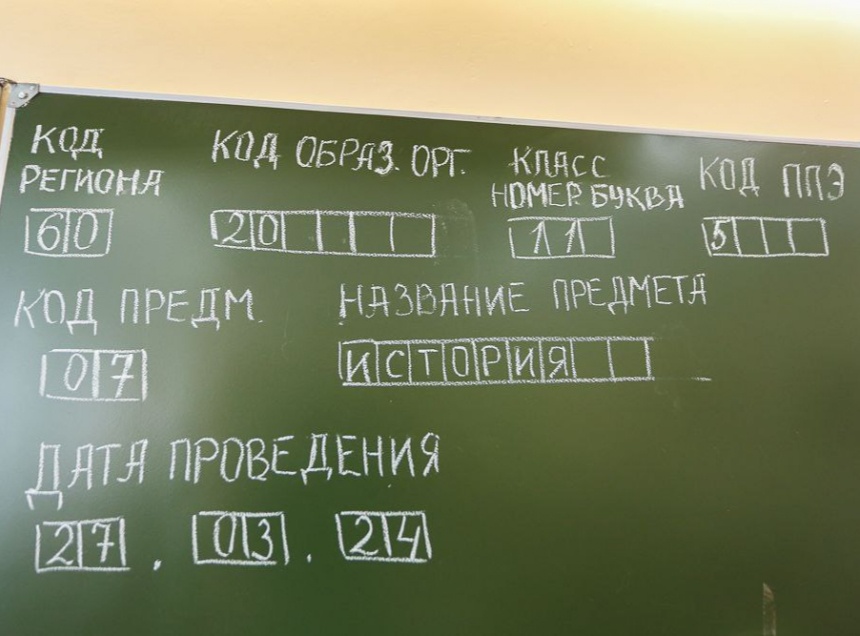 КОД РЕГИОНА
КОД ОБРАЗ. ОРГ.
КЛАСС
НОМЕР БУКВА
КОД ППЭ
60
20
11
5
КОД ПРЕДМ.
НАЗВАНИЕ ПРЕДМЕТА
07
ИСТОРИЯ
ДАТА ПРОВЕДЕНИЯ
27.03.24